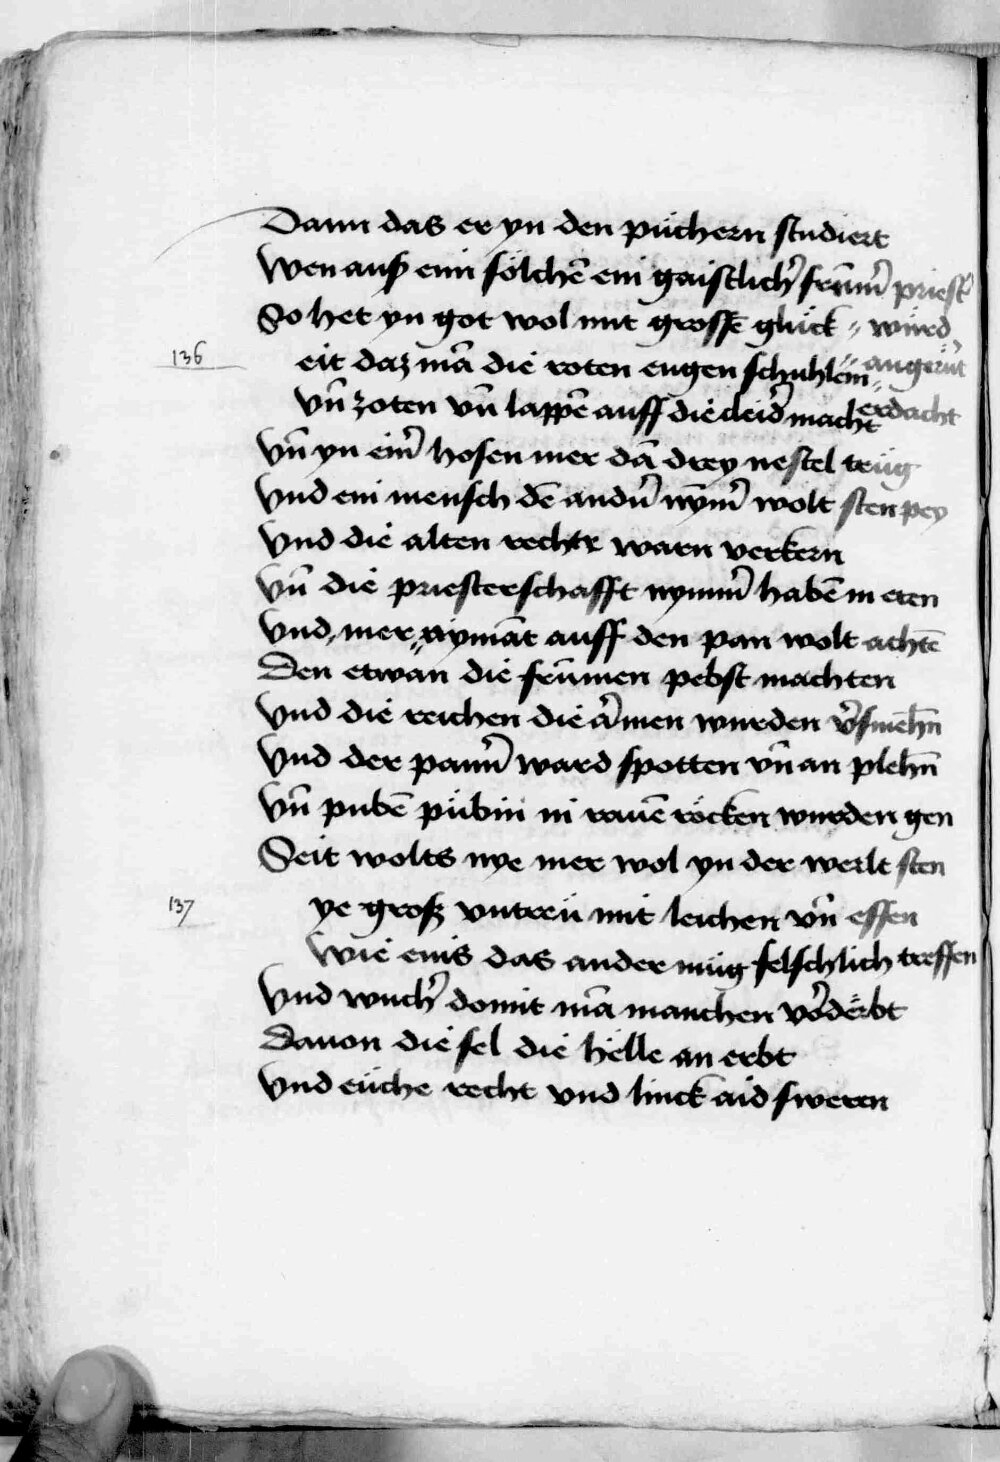 Dann das er yn den püchern studiert
Wen auß eim sölchē ein gaistlich' frūm' priest'
So het yn got wol mit grossē glück würd
136 eit daz mā die roten eugen schuhlein angerüt
vn̄ zoten vn̄ lappē auff die cleid' macht erdacht
vn̄ yn eim' hosen mer dā drey nestel trüg
vnd ein mensch dē andn̄ nym' wolt sten pey
vnd die alten rechtr warn verkern
vn̄ die priesterschafft nymm' habē in eren
vnd mer nymāt auff den pan wolt achtē
Den etwan die frūmen pebst machten
vnd die reichen die armen wurden v'smehn̄
vnd der paun' ward spotten vn̄ an plehn̄
vn̄ pubē pübin in rauē röcken wurden gen
Seit wolts nye mer wol yn der werlt sten
137 ye groß vntreü mit leichen vn̄ effen
Wie eins das ander müg felschlich treffen
vnd wuch' domit mā manchen v'derbt
Dauon die sel die helle an erbt
vnd eüche recht vnd linck aid sweren